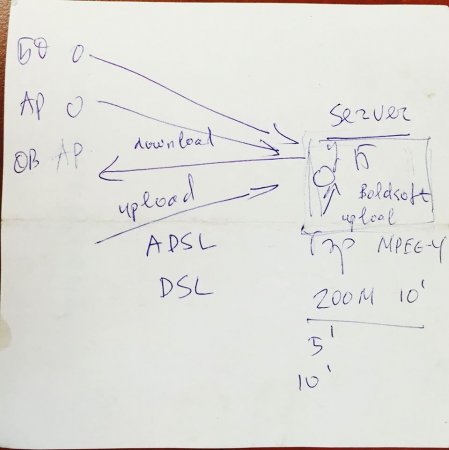 БӨ O
AP O
OB AP
download
upload
ADSL
DSL
Server
Boldsoft
upload
MPEG-4
200M 10'
5'
10'